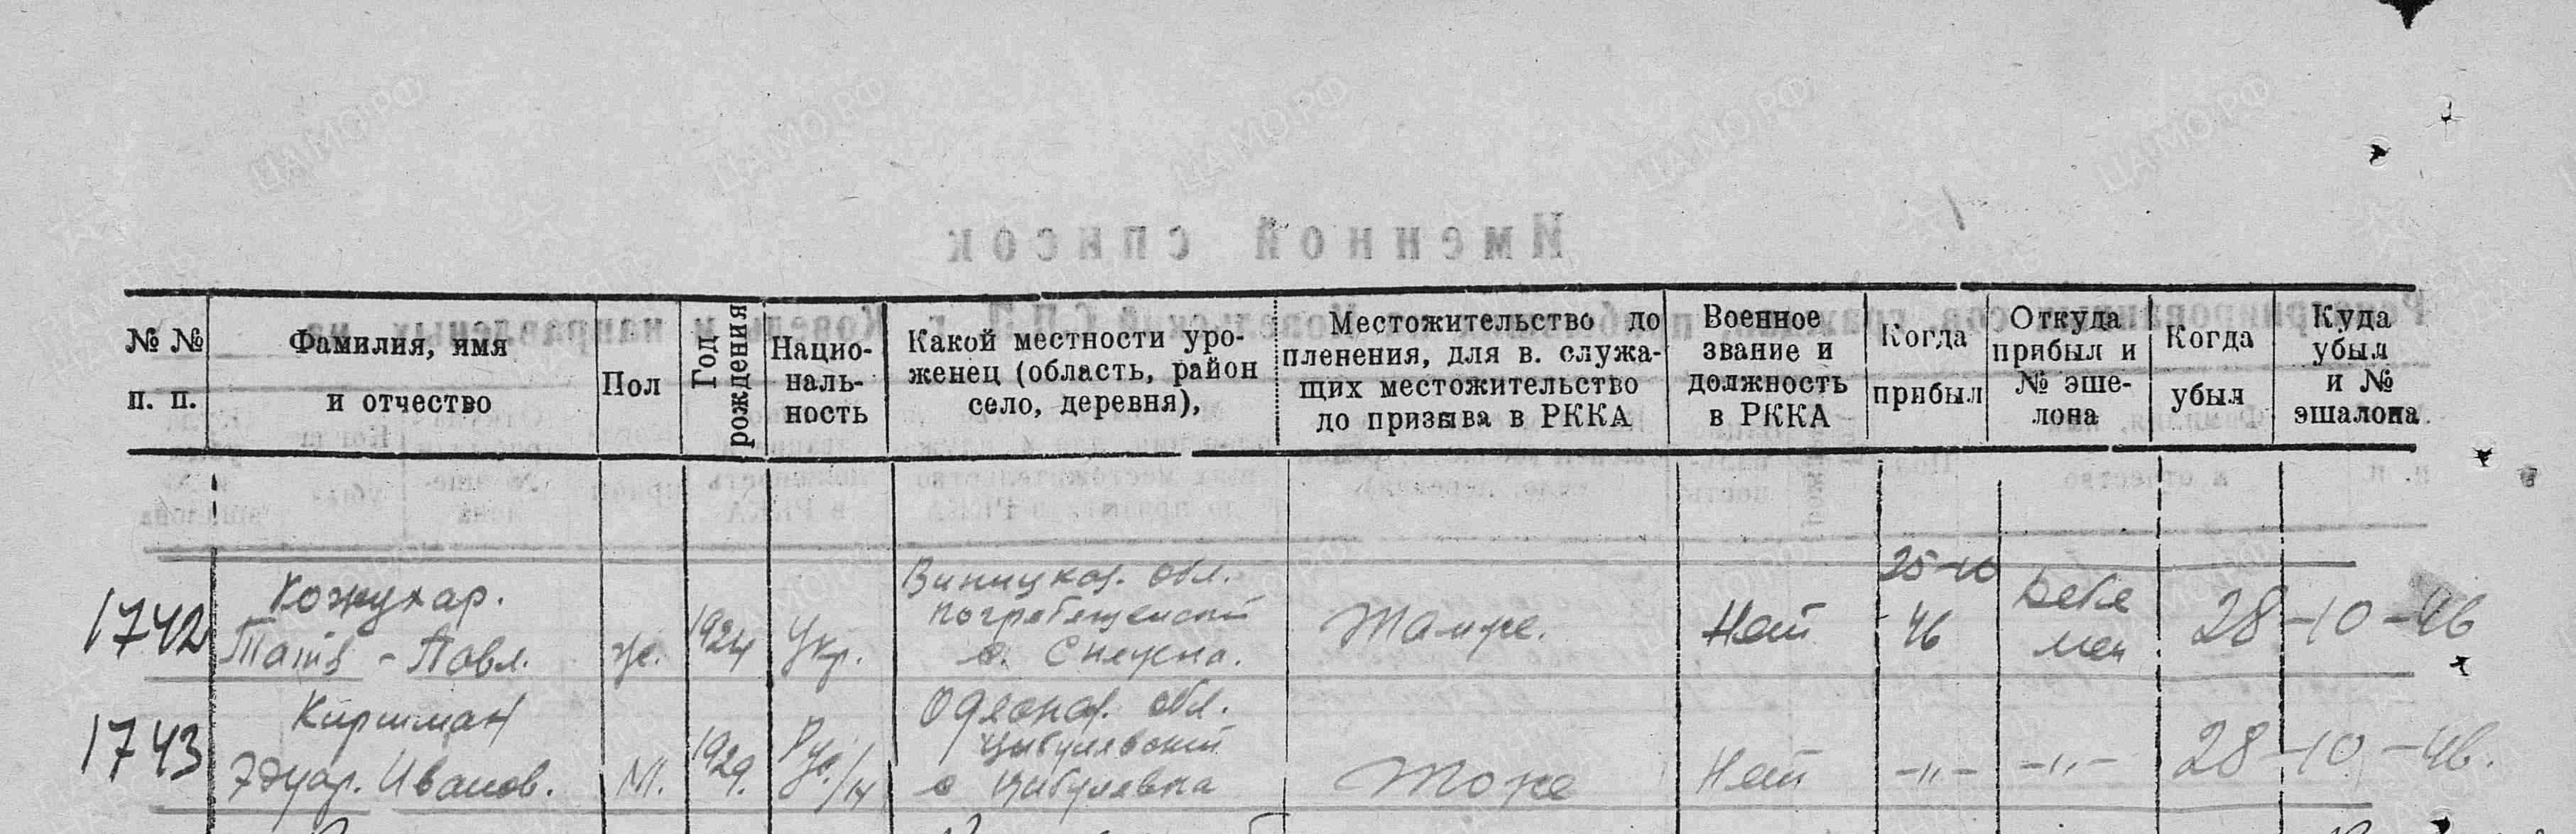 Именной список
№ №
п. п.
Фамилия, имя
и отчество
Пол
Год
рождения
Нацио-
наль-
ность
Какой местности уро-
женец (область, район
село, деревня),
Местожительство до
пленения, для в. служа-
щих местожительство
до призыва в РККА
Военное
звание и
должность
в РККА
Когда
прибыл
Откуда
прибыл и
№ эше-
лона
Когда
убыл
Куда
убыл
и №
эшалона
1742
Кожухар.
Павл.
ж.
1924
Укр.
Виницкая. обл.
Погребещенский
с.
Нет
25-10
46
28-10-46
1743
Киршман
Эдуар. Иванов.
М.
1929.
Одесская. обл.
Цибулевский
с Цибулевка
Тоже
Нет
-"-
-"-
28-10-46.
ЦАМО РФ